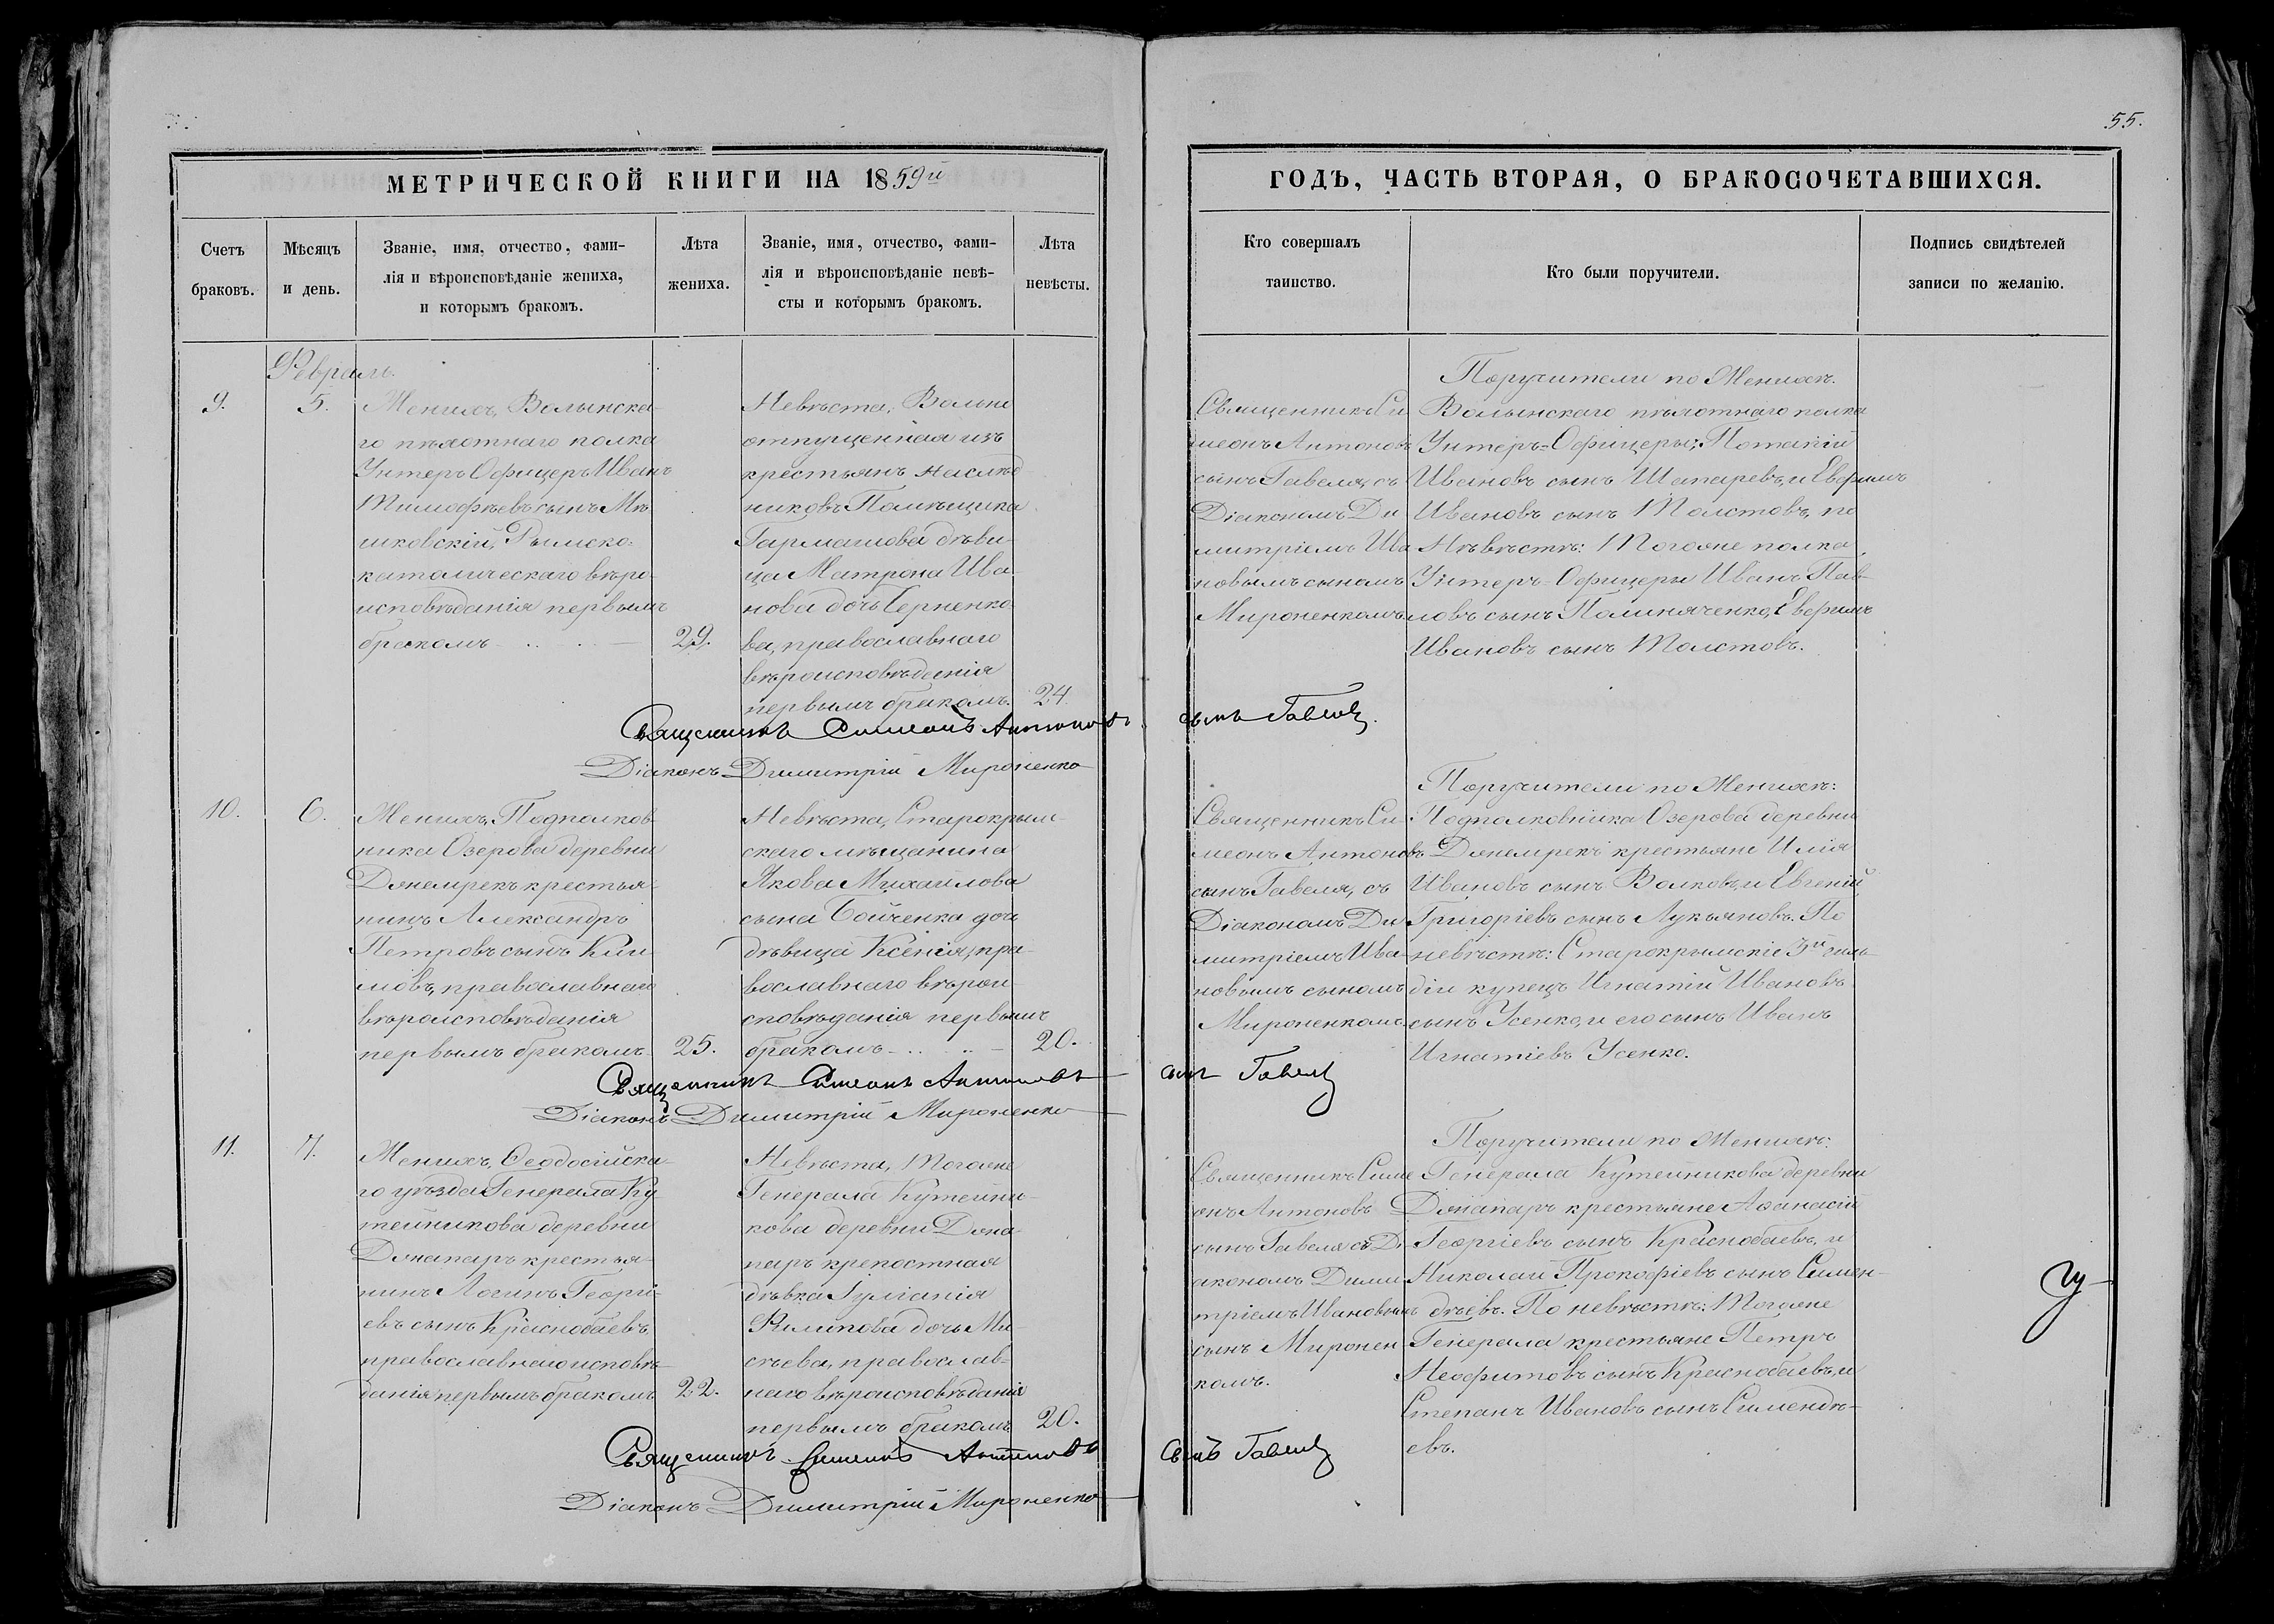 55.
МЕТРИЧЕСКОЙ КНИГИ НА 1859й
ГОДЪ, ЧАСТЬ ВТОРАЯ, О БРАКОСОЧЕТАВШИХСЯ.
Счетъ
браковъ.
Мѣсяцъ
и день.
Званіе, имя, отчество, фами-
лія и вѣроисповѣданіе жениха,
и которымъ бракомъ.
Лѣта
жениха.
Званіе, имя, отчество, фами-
лія и вѣроисповѣданіе невѣ-
сты и которымъ бракомъ.
Лѣта
невѣсты.
Кто совершалъ
таинство.
Кто были поручители.
Подпись свидѣтелей
записи по желанію.
Февраль.
9.
5.
Женихъ, Волынска-
го пѣхотнаго полка
Унтеръ Офицеръ Иванъ
Тимофѣевъ сынъ Мѣ
шковскій, Римско-
католическаго вѣро-
исповѣданія первымъ
бракомъ
29.
Невѣста, Вольно
отпущенная изъ
крестьянъ наслѣд
никовъ Помѣщика
Гармашова дѣви-
ца Матрона Ива-
нова дочь Черненко-
ва, православнаго
вѣроисповѣданія
первымъ бракомъ.
24.
Священникъ Си
меонъ Антоновъ
сынъ Гавеля, съ
Діакономъ Ди
митріемъ Ива
новымъ сыномъ
Мироненкомъ.
Поручители по Женихѣ.
Волынскаго пѣхотнаго полка
Унтеръ-Офицеры: Потапій
Ивановъ сынъ Шатаревъ, и Евфимъ
Ивановъ сынъ Толстовъ, по
Нѣвѣстѣ: Тогоже полка
Унтеръ-Офицеры Иванъ Пав-
ловъ сынъ Полиняченко, Евфимъ
Ивановъ сынъ Толстовъ.
Священникъ Симеонъ Антоновъ сынъ Гавеля
Діаконъ Димитрій Мироненко
10.
6.
Женихъ, Подполков-
ника Озерова деревни
Джемрекъ крестья-
нинъ Александръ
Петровъ сынъ Кли-
мовъ, православнаго
вѣроисповѣданія
первымъ бракомъ
25.
Невѣста, Старокрым-
скаго мѣщанина
Якова Михайлова
сына Бойченка дочь
дѣвица Ксенія, пра-
вославнаго вѣрои-
сповѣданія первымъ
бракомъ
20.
Священникъ Си-
меонъ Антоновъ
сынъ Гавеля, съ
Діакономъ Ди
митріемъ Ива-
новымъ сыномъ
Мироненкомъ.
Поручители по Женихѣ:
Подполковника Озерова деревни
Джемрекъ крестьяне Илія
Ивановъ сынъ Волковъ, и Евгеній
Григоріевъ сынъ Лукьяновъ. По
невѣстѣ: Старокрымскіе 3й гиль-
діи купецъ Игнатій Ивановъ
сынъ Усенко, и его сынъ Иванъ
Игнатіевъ Усенко.
Священникъ Симеонъ Антоновъ сынъ Гавеля
Діаконъ Димитрій Мироненко
11.
7.
Женихъ, Ѳеодосійска-
го уѣзда Генерала Ку-
тейникова деревни
Джапаръ крестья-
нинъ Логинъ Георгі-
евъ сынъ Краснобаевъ,
православнаго исповѣ-
данія первымъ бракомъ
22.
Невѣста, Тогоже
Генерала Кутейни-
кова деревни Джа-
паръ крепостная
дѣвка Іуліанія
Филипова дочь Ми
сѣева, православ-
наго вѣроисповѣданія
первымъ бракомъ
20.
Священникъ Симе
онъ Антоновъ
сынъ Гавеля съ Ді-
акономъ Дими
тріемъ Ивановымъ
сынъ Миронен
комъ.
Поручители по Женихѣ:
Генерала Кутейникова деревни
Джапаръ крестьяне Аѳанасій
Георгіевъ сынъ Краснобаевъ, и
Николай Прокофіевъ сынъ Симен-
дѣевъ. По невѣстѣ: Тогоже
Генерала крестьяне Петръ
Неофитовъ сынъ Краснобаевъ, и
Степанъ Ивановъ сынъ Симендѣ-
евъ.
Священникъ Симеонъ Антоновъ сынъ Гавеля
Діаконъ Димитрій Мироненко